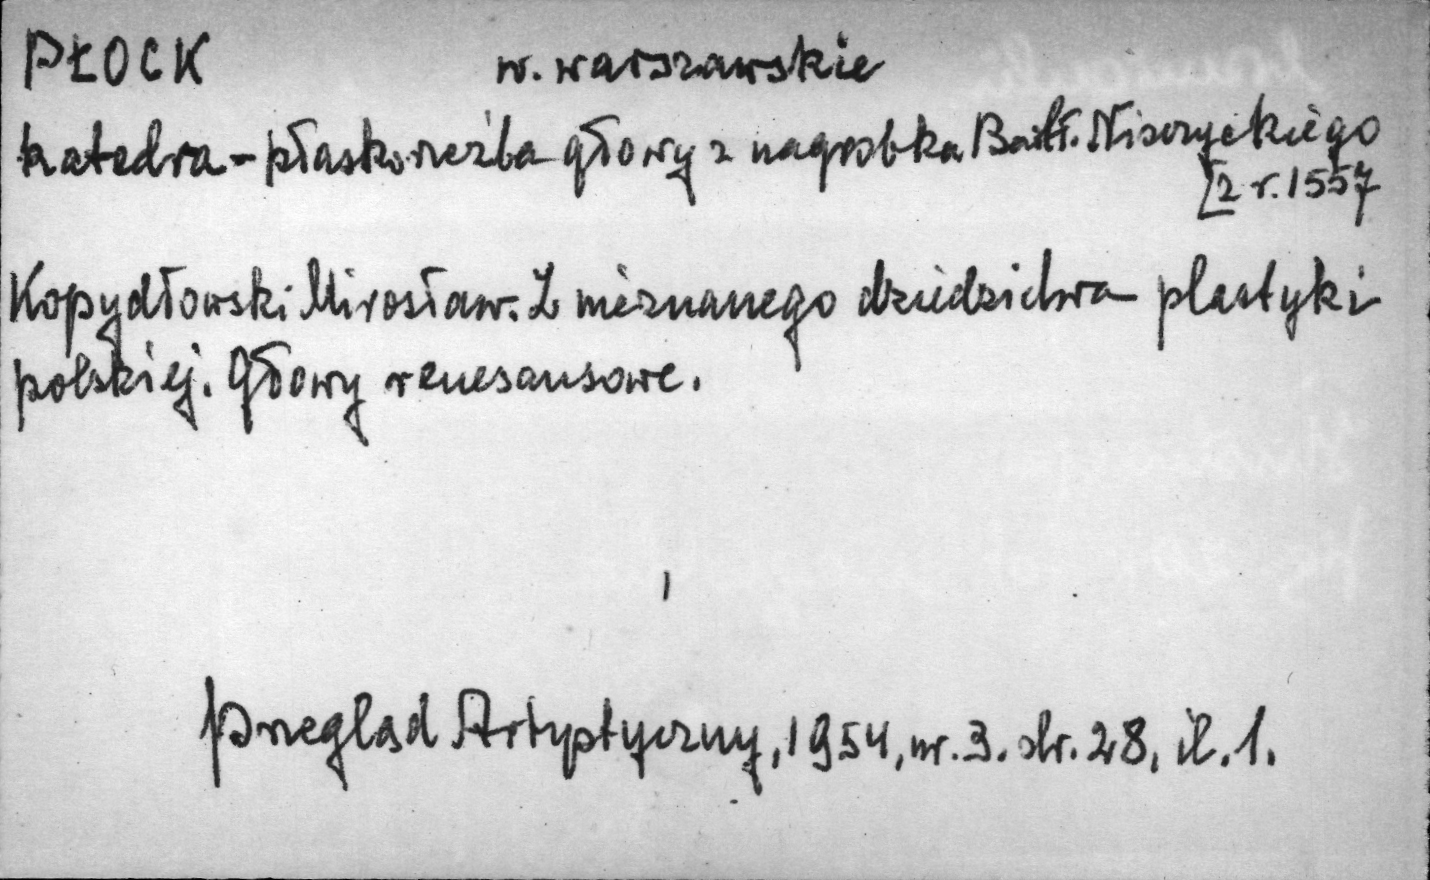 PŁOCK w. warszawskie
Katedra - płaskorzeźba głowy z nagrobka Bartł. Niszczyckiego
[z r. 1557
Kopydłowski Mirosław. Z nieznanego dziedzictwa plastyki
polskiej. Głowy renesansowe.
Przegląd Artystyczny, 1954, nr. 3. str. 28, il. 1.